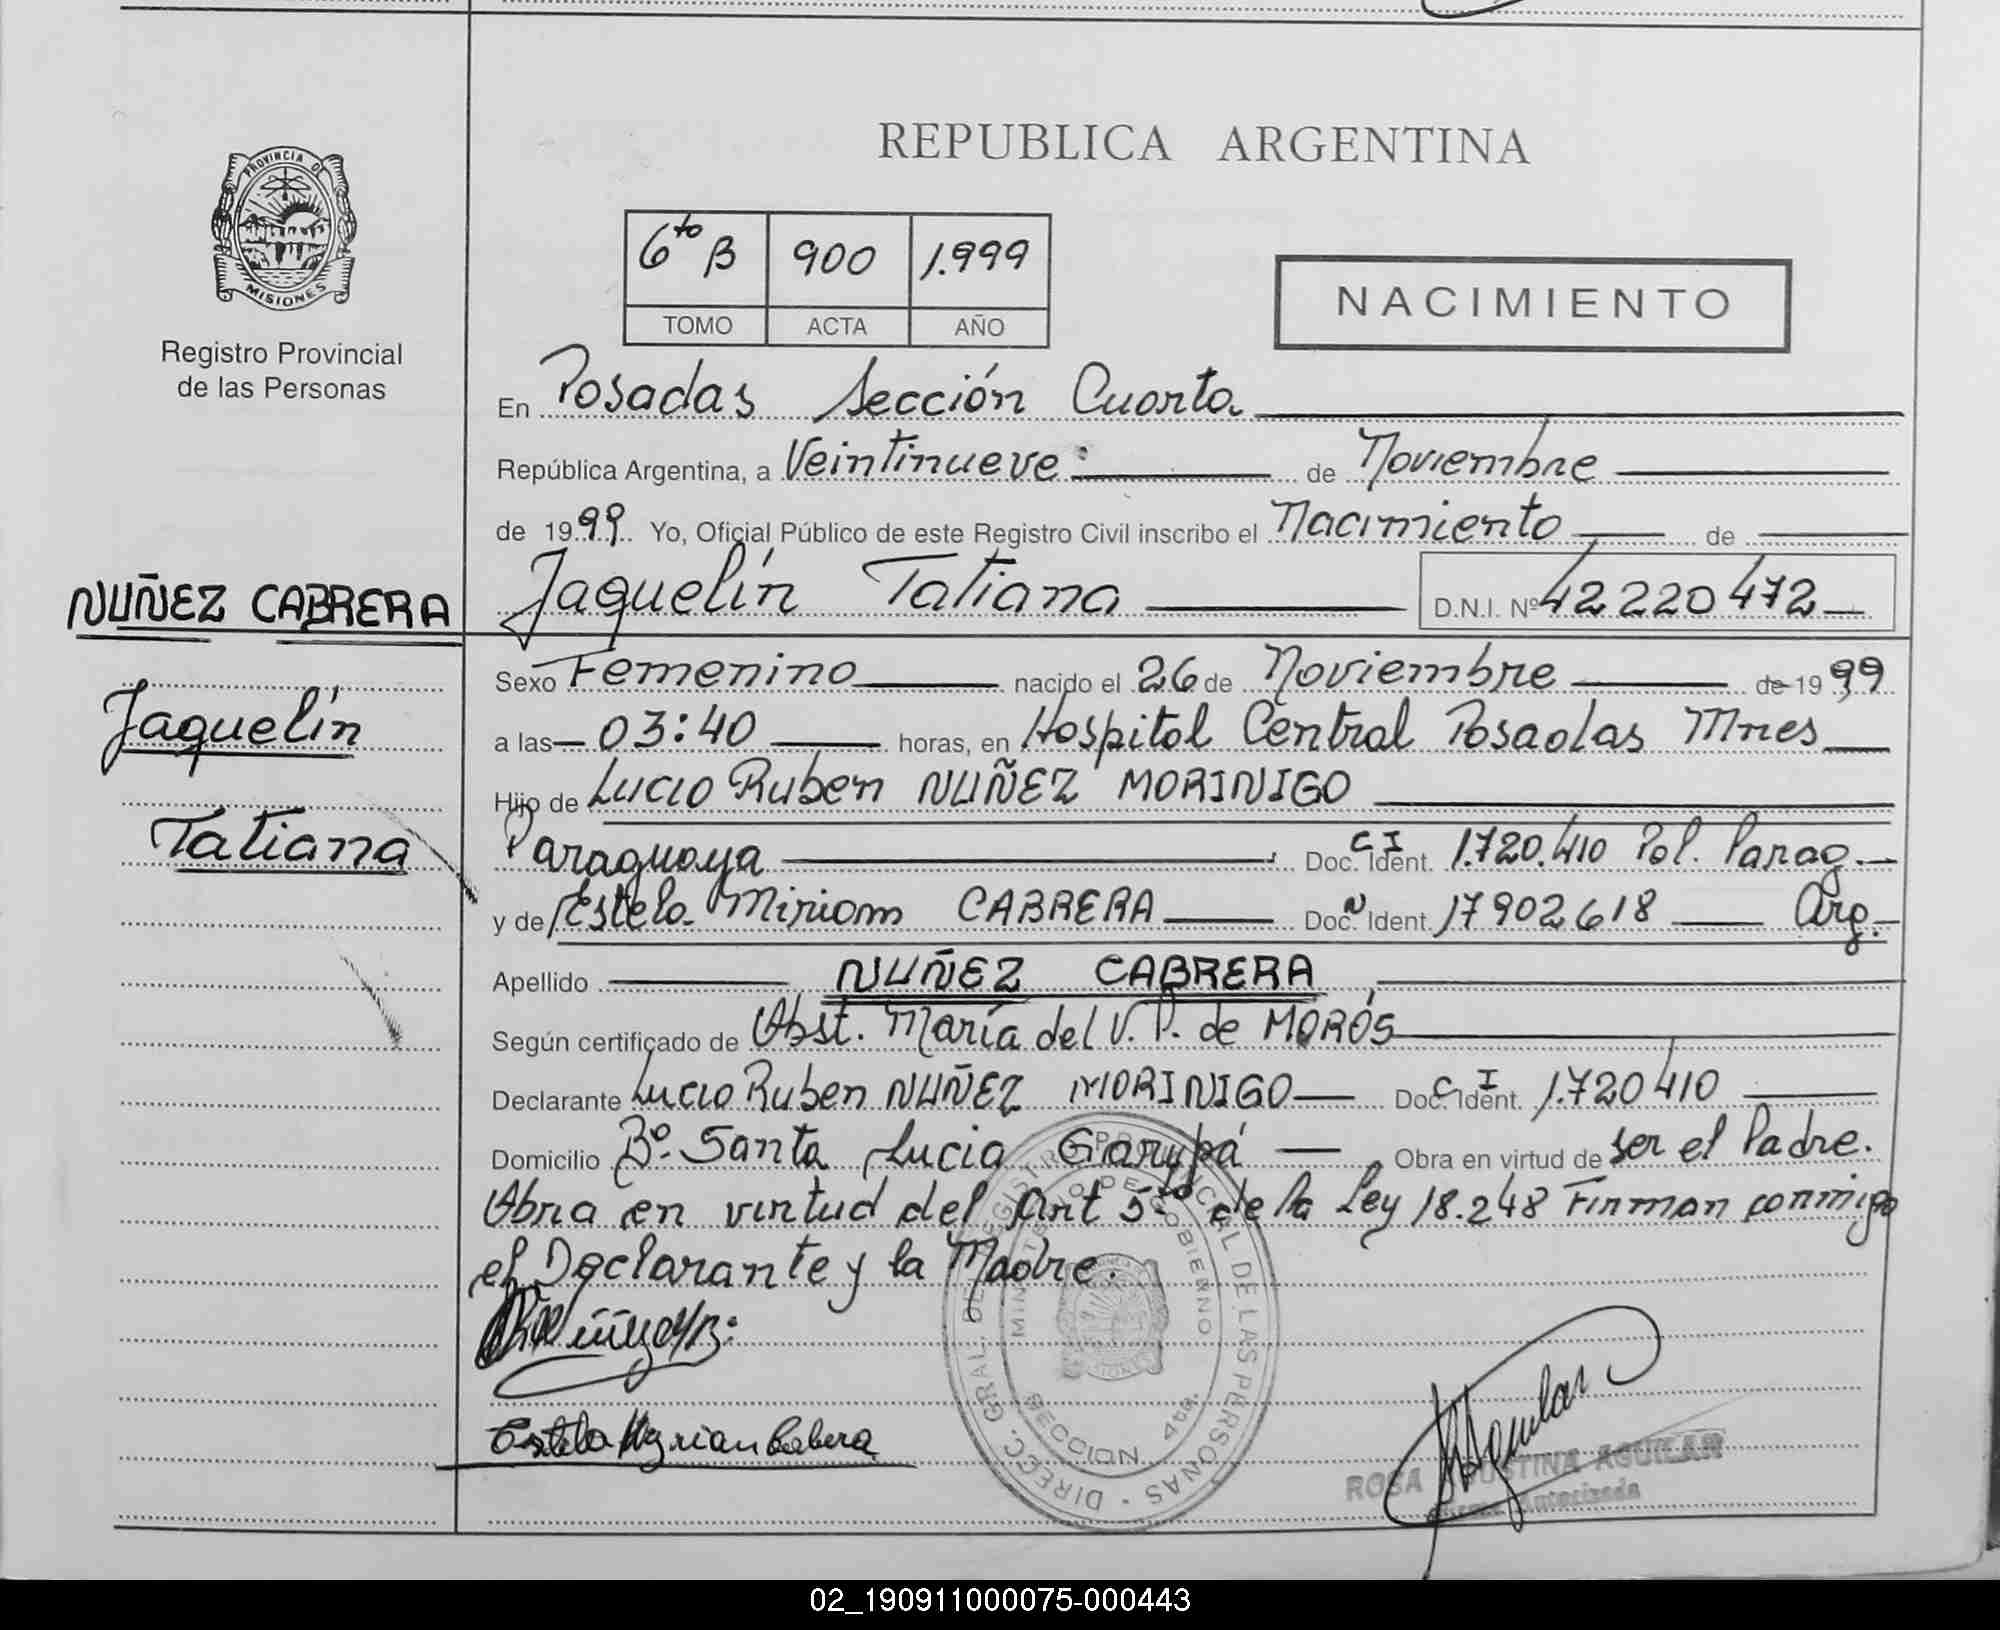 REPUBLICA ARGENTINA
PROVINCIA DE
MISIONES
Registro Provincial
de las Personas
6to B 900 1.999
TOMO ACTA AÑO
NACIMIENTO
En Posadas Sección Cuarta
República Argentina, a Veintinueve de Noviembre
de 1999 Yo, Oficial Público de este Registro Civil inscribo el Nacimiento de
NUÑEZ CABRERA
Jaquelín Tatiana D.N.I. Nº 42220472
Sexo Femenino nacido el 26 de Noviembre de 1999
Jaquelín
a las 03:40 horas, en Hospital Central Posadas Mnes
Hijo de Lucio Ruben NUÑEZ MORINIGO
Tatiana
Paraguaya Doc. Ident. C I 1.720.410 Pol. Parag.
y de Estela Miriam CABRERA Doc. Ident. 17902618 Arg.
Apellido NUÑEZ CABRERA
Según certificado de Obst. María del V. P. de MORÓS
Declarante Lucio Ruben NUÑEZ MORINIGO Doc. Ident. C I 1.720410
Domicilio Bº. Santa Lucia Garupá Obra en virtud de ser el Padre.
Obra en virtud del Art 5to de la Ley 18.248 Firman conmigo
el Declarante y la Madre.
DIREC. GRAL. DEL REGISTRO PROVINCIAL DE LAS PERSONAS
MINISTERIO DE GOBIERNO
SECCION 4ta.
Estela Myrian Cabrera
Aguilar
ROSA AGUSTINA AGUILAR
Firma Autorizada
02_190911000075-000443